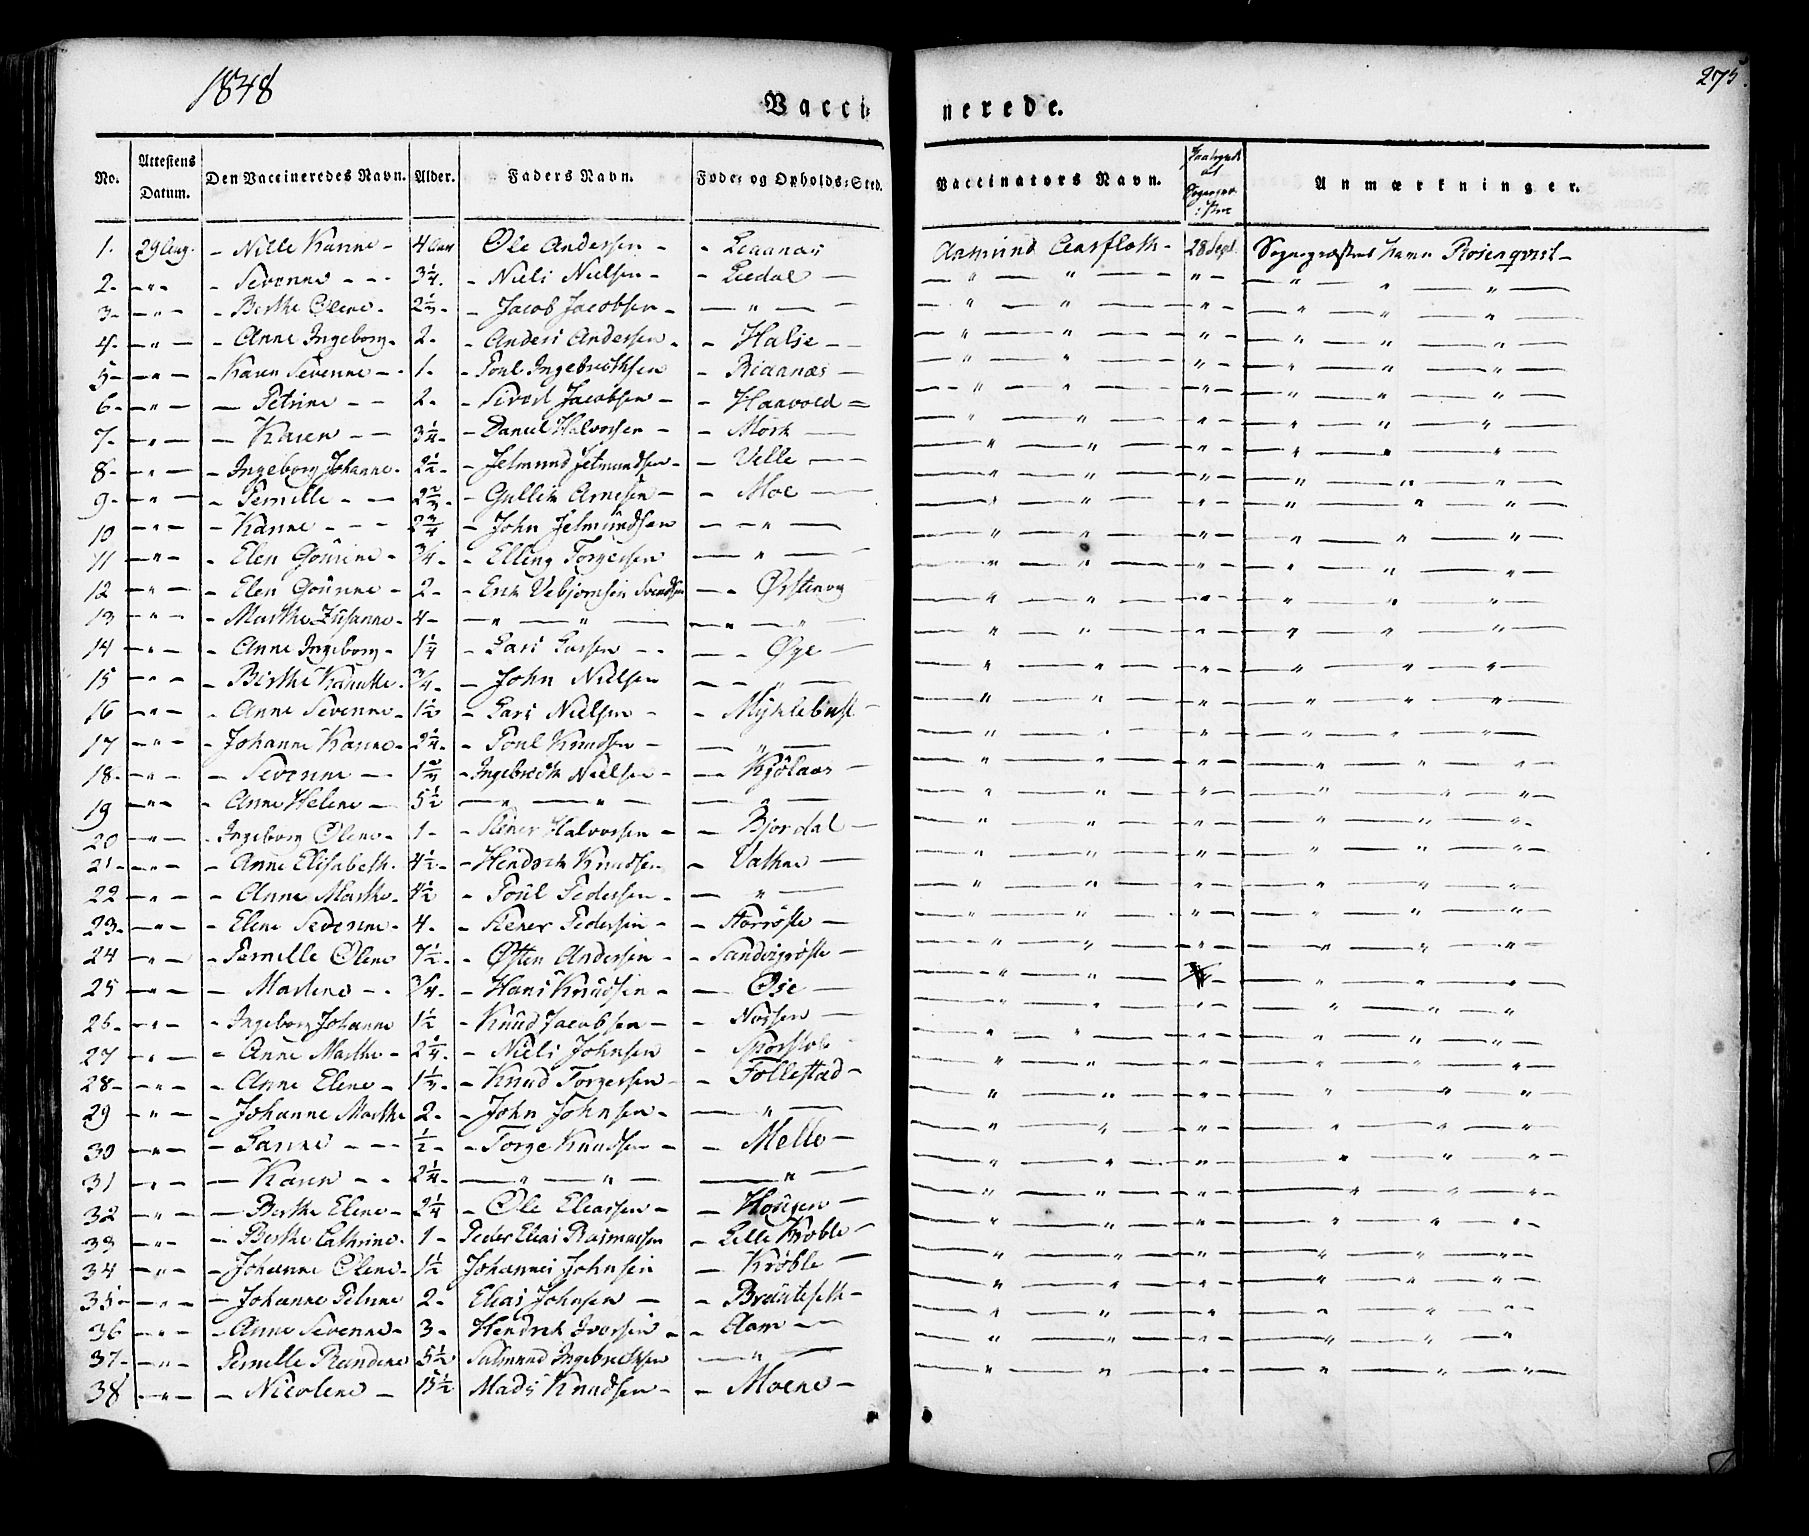 1848
275.
Vaccinerede.
No. Attestens Datum. Den Vaccineredes Navn. Alder. Faders Navn. Føde- og Opholds-Sted. Vaccinators Navn. Anmærkninger.
1. 29 Aug. - Nille Hanne - 4 Ole Andersen - - Leganæs Aasmund Aarfloth - 28 Sept. Sognepræstens Rosenqvist -
2. - " - - Sevenne - - - 3 1/4. - Niels Nielsen - - Liedal - - " - " - " - - " - " - " -
3 - - " - - Berthe Olene - 2 1/3 - - Jacob Jacobsen - - " - - " - " - " - - " - " - " -
4. - " - - Anne Ingeborg - 2 - - Anders Andersen - - Halse - - - " - " - " - - " - " - " -
5 - - " - - Karen Sevenne - - 1 - - Poul Ingebrethsen - Riaanæs - - " - " - " - - " - " - " -
6 - - " - - Petrine - - 2 - - Sivert Jacobsen - - Haavold = - " - " - " - - " - " - " -
7 - - " - - Karen - - 3 1/4 - - Daniel Halvorsen - - Mork - - " - " - " - - " - " - " -
8 - - " - - Ingeborg Johanne - 2 1/2 - - Jetmund Jetmundsen - - Velle - - " - " - " - - " - " - " -
9 - - " - - Pernille - - 2 2/3 - - Gullik Arnesen - - Moe - - " - " - " - - " - " - " -
10 - " - - Hanne - - - 2 3/4 - John Jetmundsen - " - - " - " - " - - " - " - " -
11 - " - - Elen Gourine - 3/4 - - Elling Torgersen - " - - " - " - " - - " - " - " -
12 - " - - Elen Gourine - 2 - - Erik Vebjørnsen Svendsen - - Ørstenvig - " - " - " - - " - " - " -
13 - " - - Marthe Susanne - 4 - - " - " - - " - " - " - " - " - - " - " - " -
14 - " - - Anne Ingeborg - 1 1/4 - Lars Larsen - - - - Øye - - " - " - " - - " - " - " -
15 - " - - Birthe Hanette - 3/4 - - John Nielsen - - " - - " - " - " - - " - " - " -
16 - " - - Anne Sevenne - 1 1/2 - Lars Nielsen - - Myklebust - - " - " - " - - " - " - " -
17 - " - - Johanne Hanne - 2 1/4 - - Poul Knudsen - - " - - " - " - " - - " - " - " -
18 - - " - - Sevenne - - 1 2/3 - Ingebreth Nielsen - - Kjølaas - - " - " - " - - " - " - " -
19 - " - - Anne Helene - 5 1/2 - " - " - - " - - " - " - " - - " - " - " -
20 - " - - Ingeborg Olene - 1 - - Stener Halvorsen - - Bjørdal - - " - " - " - - " - " - " -
21 - - " - - Anne Elisabeth - 4 1/2 - - Hendrik Knudsen - Vatne - - " - " - " - - " - " - " -
22 - " - - Anne Marthe - 4 1/2 - Poul Pedersen - - " - - " - " - " - - " - " - " -
23 - - " - - Elene Sevenne - 4 - - Stener Pedersen - - - " - " - " - - " - " - " -
24 - " - - Pernille Olene 7 1/2 - - Østen Andersen - - - " - " - " - - " - " - " -
25 - " - - Marlene - - 3/4 - - Hans Knudsen - - Ose - - " - " - - " - " - " -
26 - - " - - Ingeborg Johanne 1 1/2 - Knud Jacobsen - - Nossen - - " - " - " - - " - " - " -
27 - " - - Anne Marthe - 2 1/4 - - Niels Johnsen - - " - " - " - - " - " - " -
28 - - " - - Anne Elene - 1 1/3 - - Knud Torgersen - - Follestad - - " - " - " - - " - " - " -
29 - " - - Johanne Marthe 2 - - John Johnsen - - " - - " - " - " - - " - " - " -
30 - " - - Hanne - - - 1/2 - - Torge Knudsen - - Melle - - " - " - " - - " - " - " -
31 - " - - Karen - - 2 1/4 - - " - " - - " - - " - " - " - - " - " - " -
32 - " - - Berthe Elene - 2 1/4 - Ole Eliassen - - Hougen - - " - " - " - - " - " - " -
33 - " - - Berthe Cathrine - 1 - Peder Elias Rasmussen - Lille Krøble - - " - " - " - - " - " - " -
34 - " - - Johanne Olene - 1 1/2 Johannes Johnsen - Krøble - - " - " - " - - " - " - " -
35 - - " - - Johanne Petrine 2 - Elias Johnsen - - Brauteseth - - " - " - " - - " - " - " -
36 - " - - Anne Sevenne - 3 - Hendrik Iversen - - Aam - - - " - " - " - - " - " - " -
37 - - " - Pernille Randine 5 1/2 Salmund Ingebrethsen - " - - " - " - " - - " - " - " -
38 - " - - Nicoline - 15 1/2 Mads Knudsen - - Moene - - " - " - " - - " - " - " -